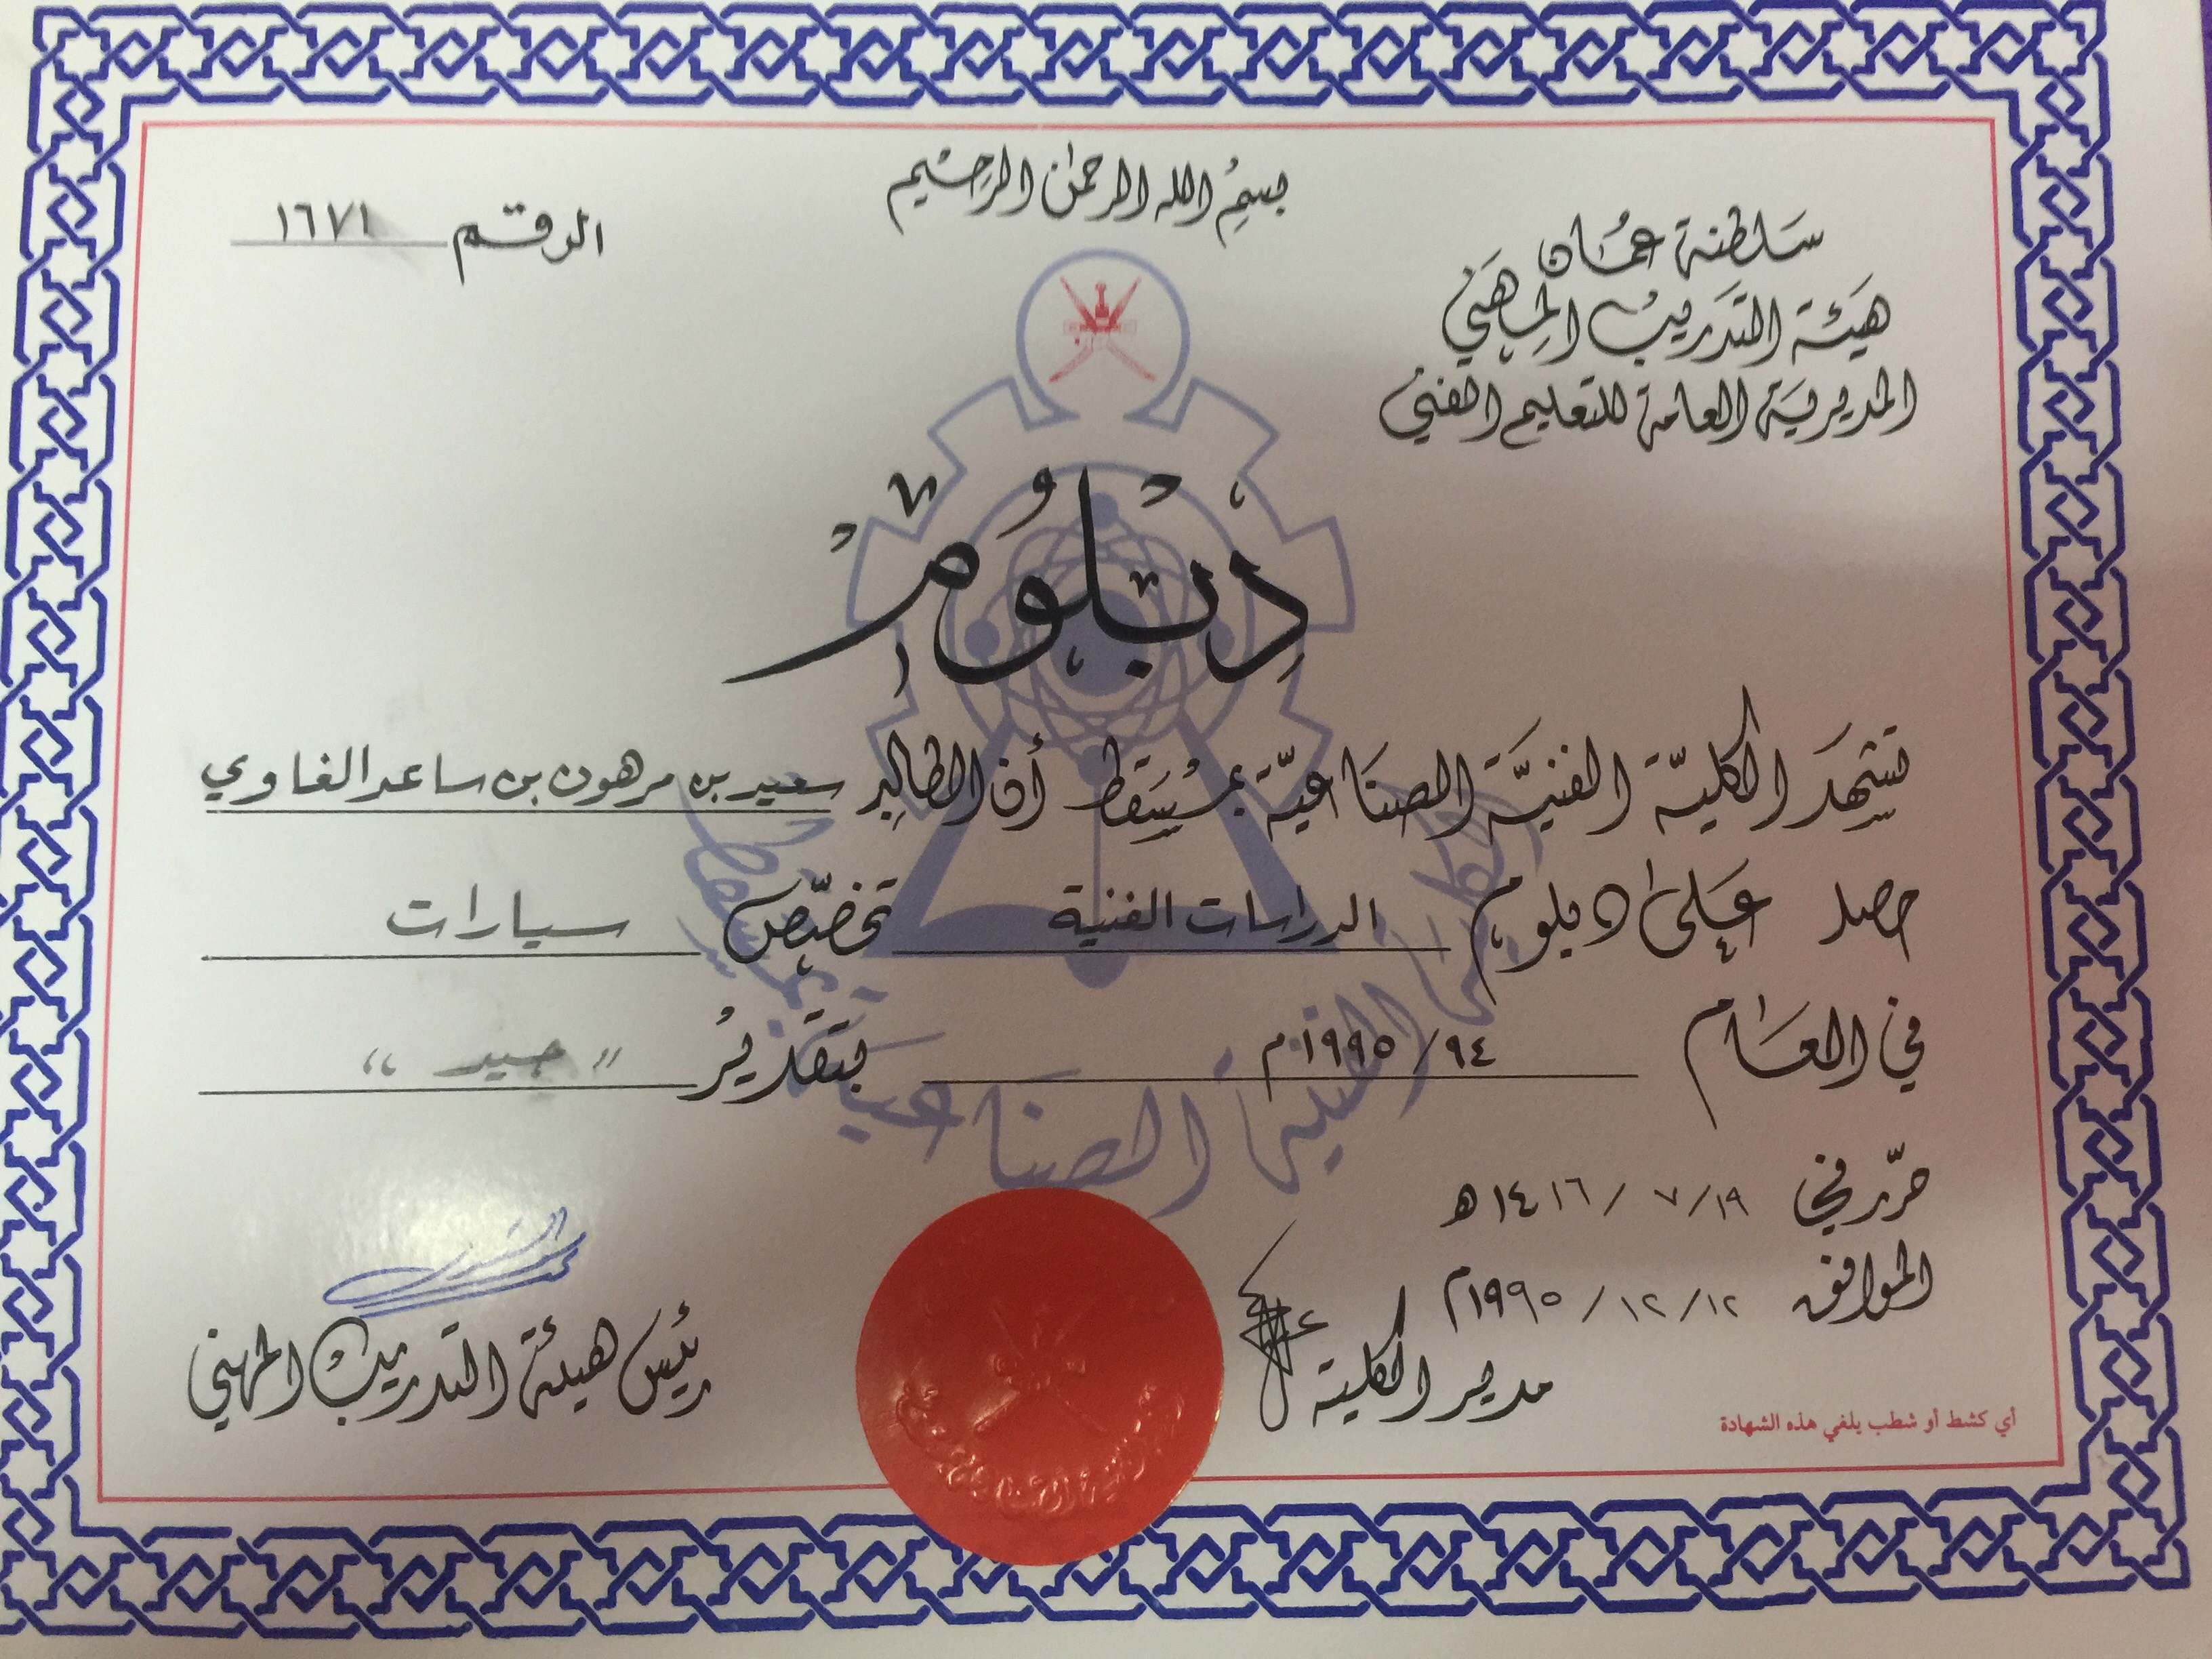 بسم الله الرحمن الرحيم
سلطنة عمان
هيئة التدريب المهني
المديرية العامة للتعليم الفني
الرقم ١٦٧١
دبلوم
تشهد الكلية الفنية الصناعية بمسقط أن الطالب سعيد بن مرهون بن ساعد الغاوي
حصل على دبلوم الدراسات الفنية تخصص سيارات
في العام ٩٤/١٩٩٥م بتقدير "جيد"
حرر في ١٩/٧/١٤١٦ه
الموافق ١٢/١٢/١٩٩٥م
مدير الكلية
رئيس هيئة التدريب المهني
أي كشط أو شطب يلغي هذه الشهادة
الكلية الفنية الصناعية بمسقط